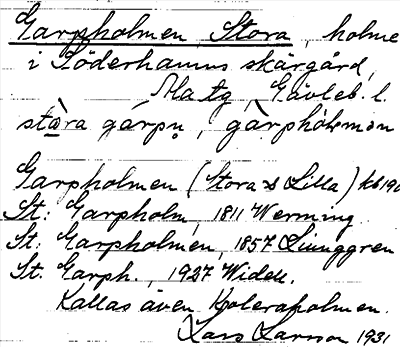 Garpholmen Stora, holme
i Söderhamns skärgård,
Ala tg, Gävleb. l.
stòra gárpn, gàrphòlmən
Garpholmen (Stora & Lilla) kb 190
St: Garpholm, 1811 Werming.
St: Garpholmen, 1857 Ljunggren
St. Garph., 1927 Widell.
Kallas även Koleraholmen.
Lars Larsson 1931